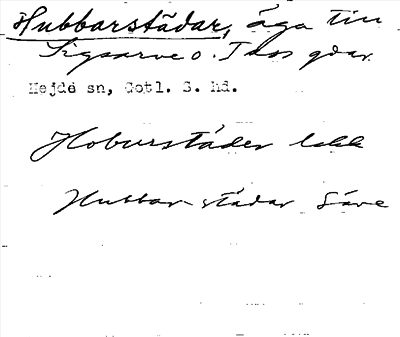 Hubbarstädar, äga till
Sigsarve o. Idos gdar.
Hejde sn, Gotl. S. hd.
Hoburstäder lokk
Hubbar städar Säve